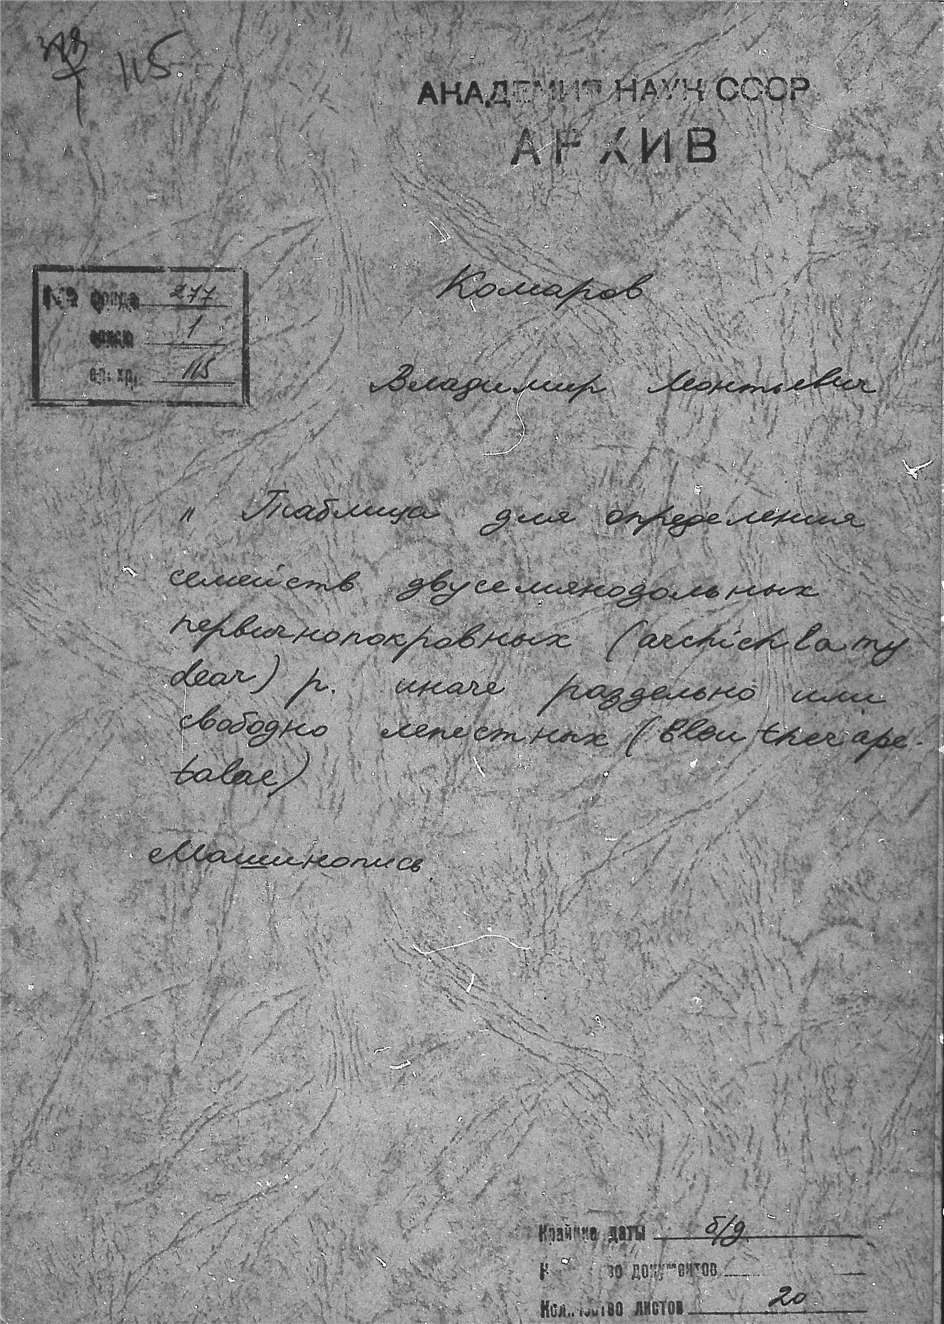 115
АКАДЕМИЯ НАУК СССР
АРХИВ
№ фонда 277
описи 1
ед. хр. 115
Комаров
Владимир Леонтьевич
„ Таблица для определения
семейств двусемянодольных
первичнопокровных (archichlamy
deae) р. иначе раздельно или
свободно лепестных (Eleutherape-
talae)
Машинопись.
Крайние даты б/д
Количество документов
Количество листов 20